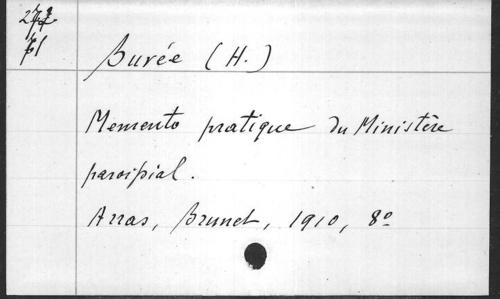 Burée (H.)
Memento pratique du Ministère
paroissial.
Arras, Brunet, 1910, 8º